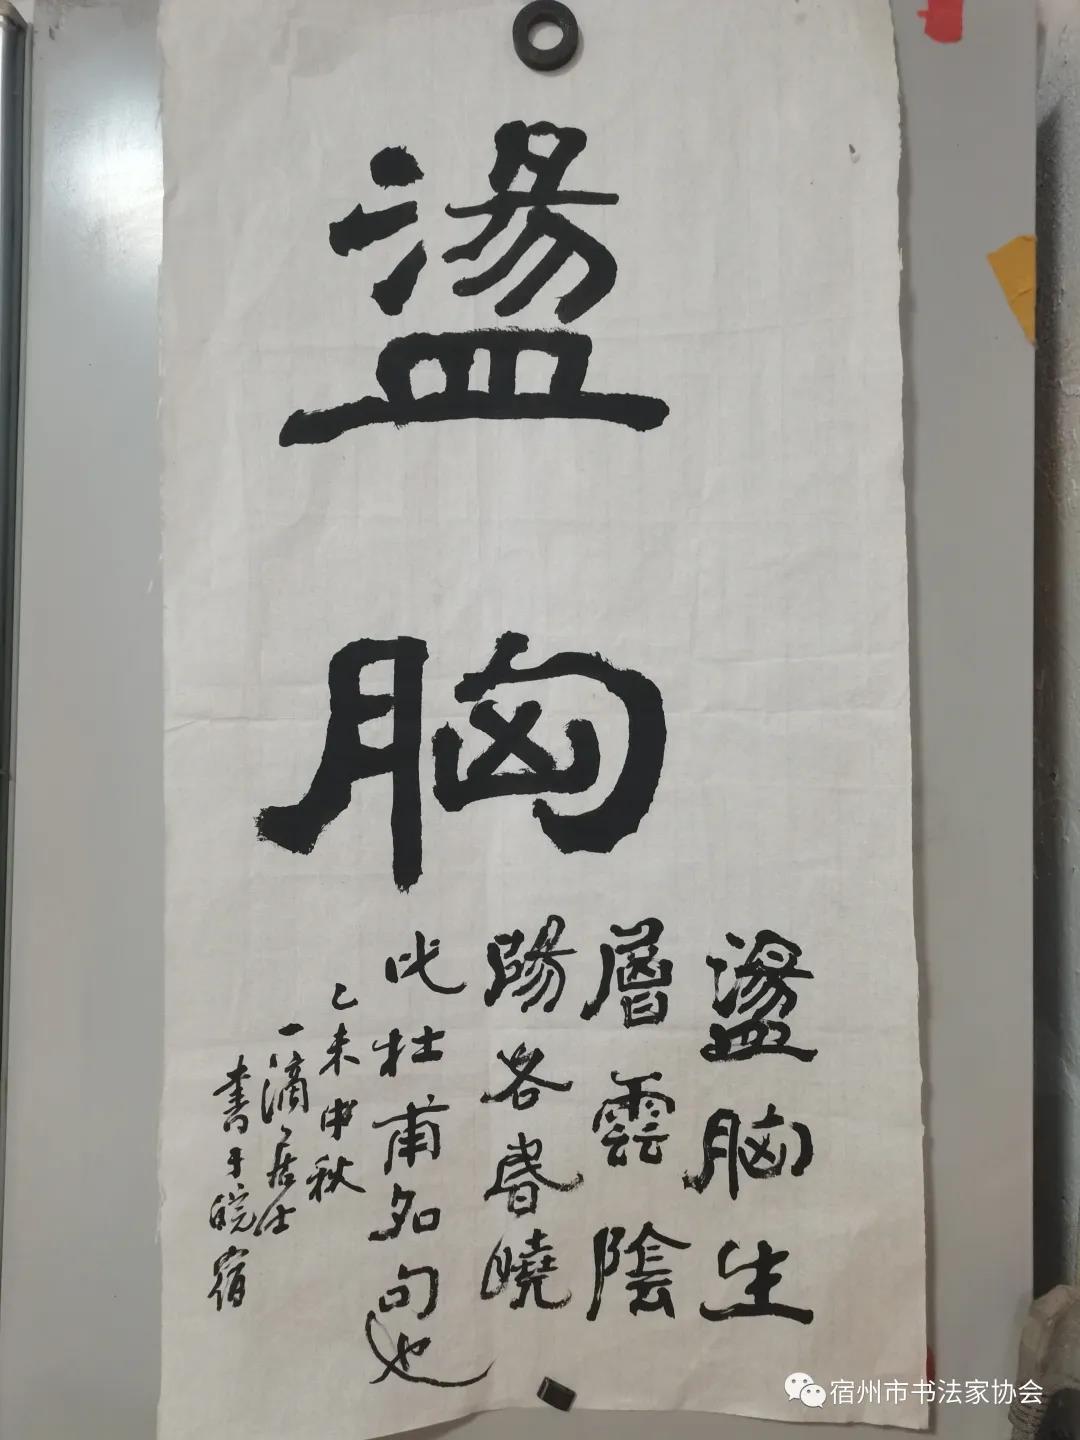 盪胸
盪胸生
層雲陰
陽各昬曉
此杜甫名句也
乙未中秋
一滴居士
書于皖宿
宿州市书法家协会